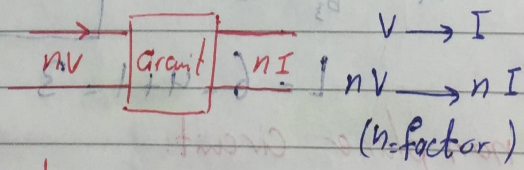 V → I
nV Circuit nI
nV → nI
(n=factor)